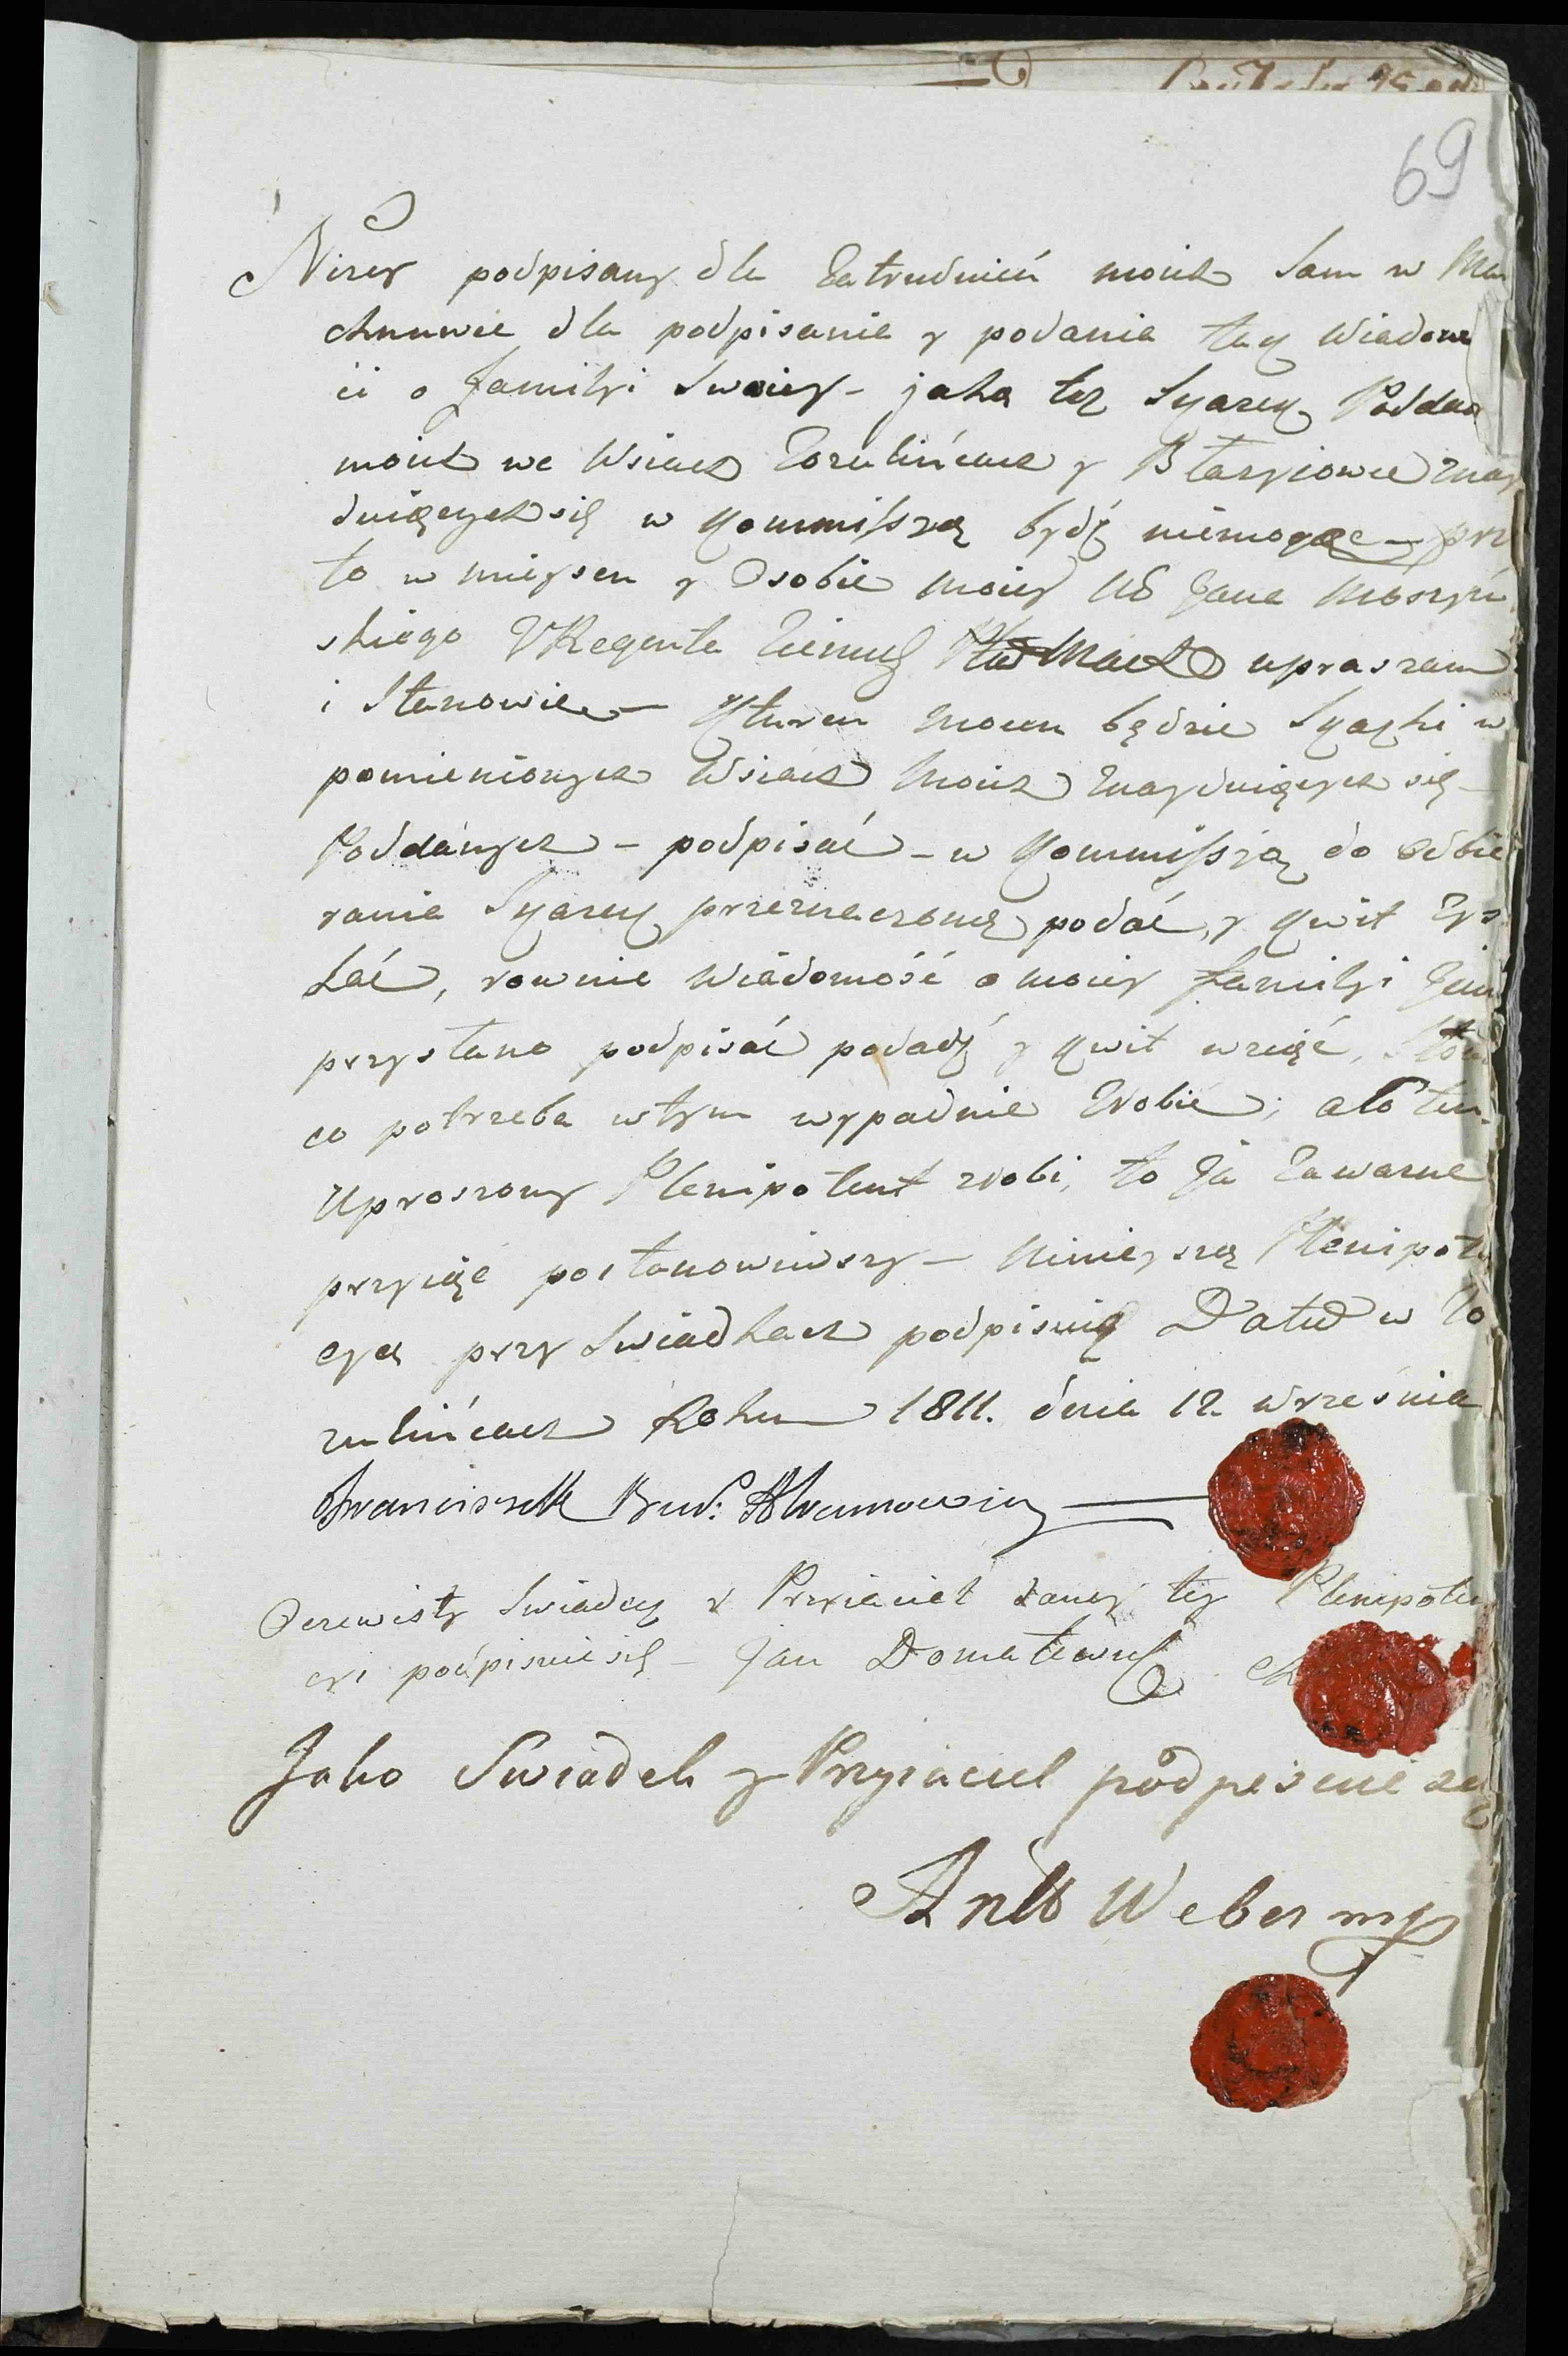 69
Nizey podpisany dla Zatrudnień moich Sam w Ma
chnuwce dla podpisania y podania tey Wiadomo
ci o Familyi Swoiey – jako też Skazey Poddan
moich we Wsiach Zozulińcach y Błazyiowce znay
duiącychsię w Kommissyą bydź niemogąc – prze
to w mieyscu y Osobie moiey Jana Moszyń
skiego Regenta Ziemsg Mach upraszam
i Stanowie – Kturen mocen będzie Skazki w
pomienionych Wsiach Moich Znayduiących się –
Poddanych – podpisać – w Kommissyą do Odbie
rania Skazey przeznaczoną podać, y Kwit Zys
kać, rownie Wiadomość o moiey Familyi
przystano podpisać podadź y Kwit wziąść,
co potrzeba wtym wypadnie Zrobić; a co ten
Uproszony Plenipotent zrobi, to Ja Zawarne
przyiąć postanowiwszy – Ninieyszą Plenipote
cyą przy Swiadkach podpisuię Datt w Zo
zulińcach Roku 1811. dnia 12 Września
Franciszek Abramowicz
Oczewisty Swiadek y Przyiaciel daney tey Plenipoten
cyi podpisuie się – Jan
Jako Swiadek y Przyiaciel podpisuie się
Antt Weber mp